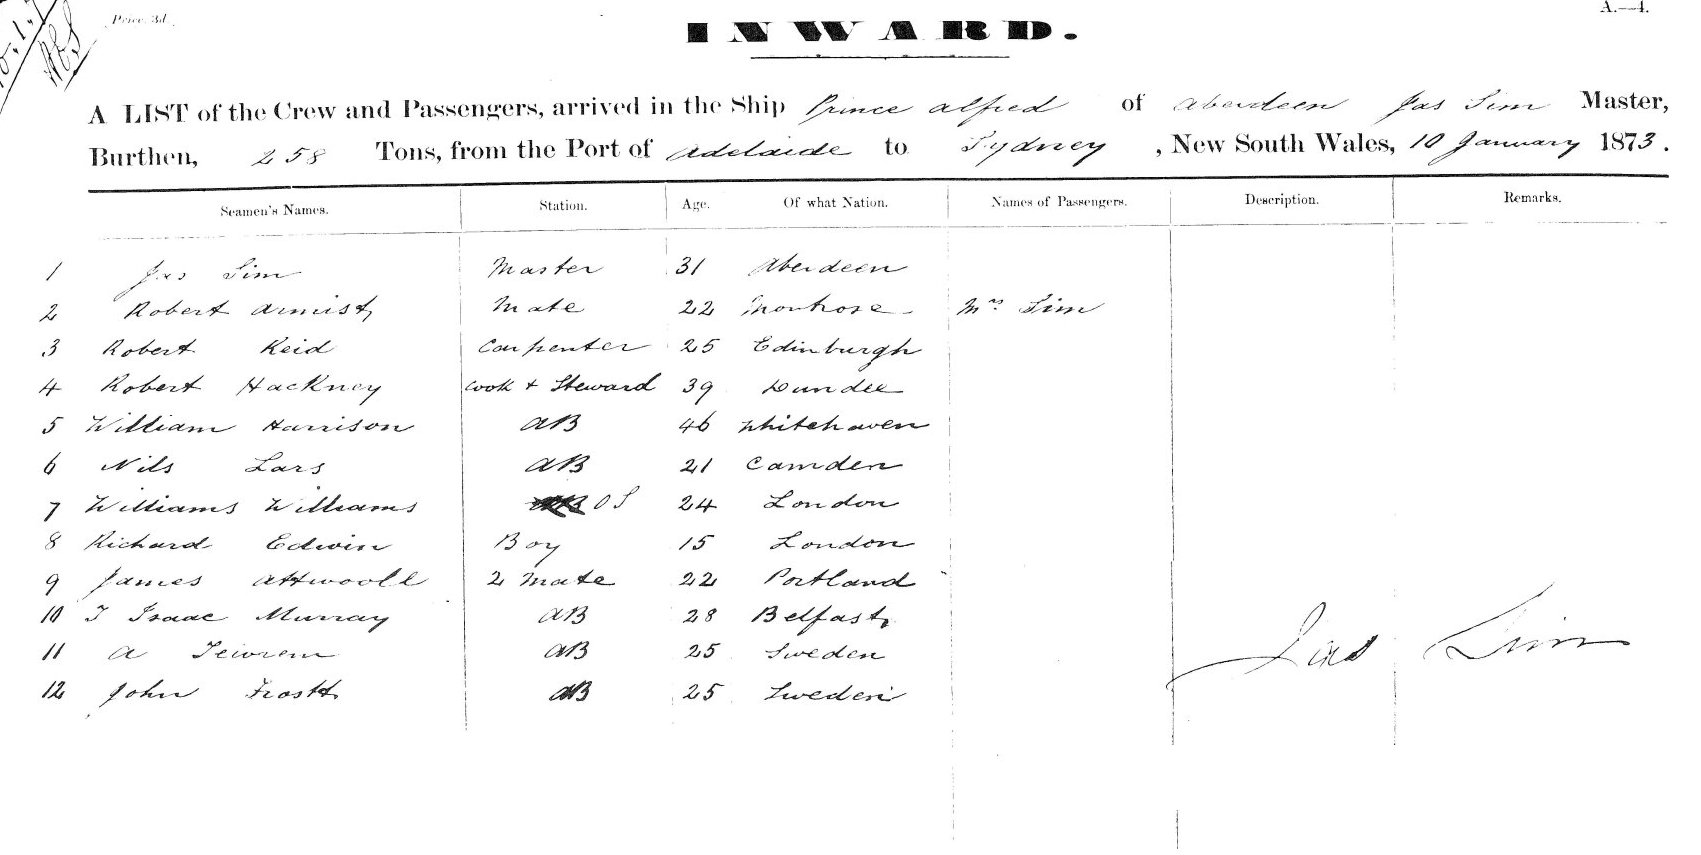 Price 3d.
A.—4.
INWARD.
A LIST of the Crew and Passengers, arrived in the Ship Prince Alfred of Aberdeen Jas Sim Master,
Burthen, 258 Tons, from the Port of Adelaide to Sydney, New South Wales, 10 January 1873.
Seamen's Names. Station. Age. Of what Nation. Names of Passengers. Description. Remarks.
1 Jas Sim Master 31 Aberdeen
2 Robert Armist Mate 22 Montrose Mrs Sim
3 Robert Reid Carpenter 25 Edinburgh
4 Robert Hackney Cook + Steward 39 Dundee
5 William Harrison AB 46 Whitehaven
6 Nils Lars AB 21 Camden
7 Williams Williams OS 24 London
8 Richard Edwin Boy 15 London
9 James Attwooll 2 Mate 22 Portland
10 T Isaac Murray AB 28 Belfast
11 A AB 25 Sweden
12 John Frostt AB 25 Sweden
Jas Sim